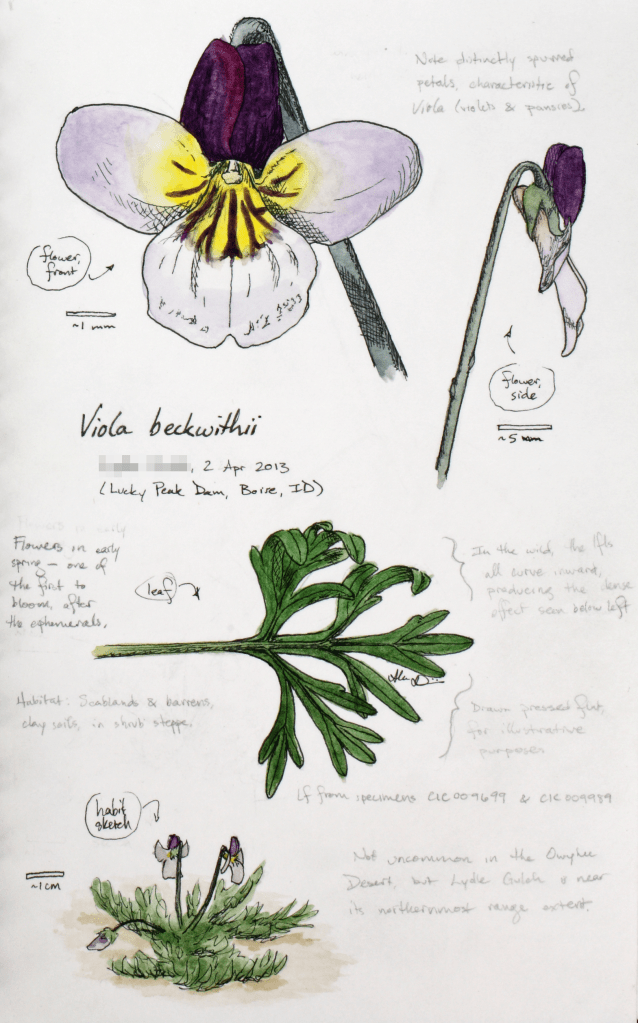 Note distinctly spurred
petals, characteristic of
Viola (violets & pansies).
flower,
front
~1 mm
flower,
side
~5 mm
Viola beckwithii
, 2 Apr 2013
(Lucky Peak Dam, Boise, ID)
Flowers in early
Flowers in early
spring — one of
the first to
bloom, after
the ephemerals.
leaf
In the wild, the lfts
all curve inward,
producing the dense
effect seen below left
Habitat: Scablands & barrens,
clay soils, in shrub steppe.
Drawn pressed flat,
for illustrative
purposes
Lf from specimens CIC009699 & CIC009989
habit
sketch
~1cm
Not uncommon in the Owyhee
Desert, but Lydle Gulch is near
its northernmost range extent.